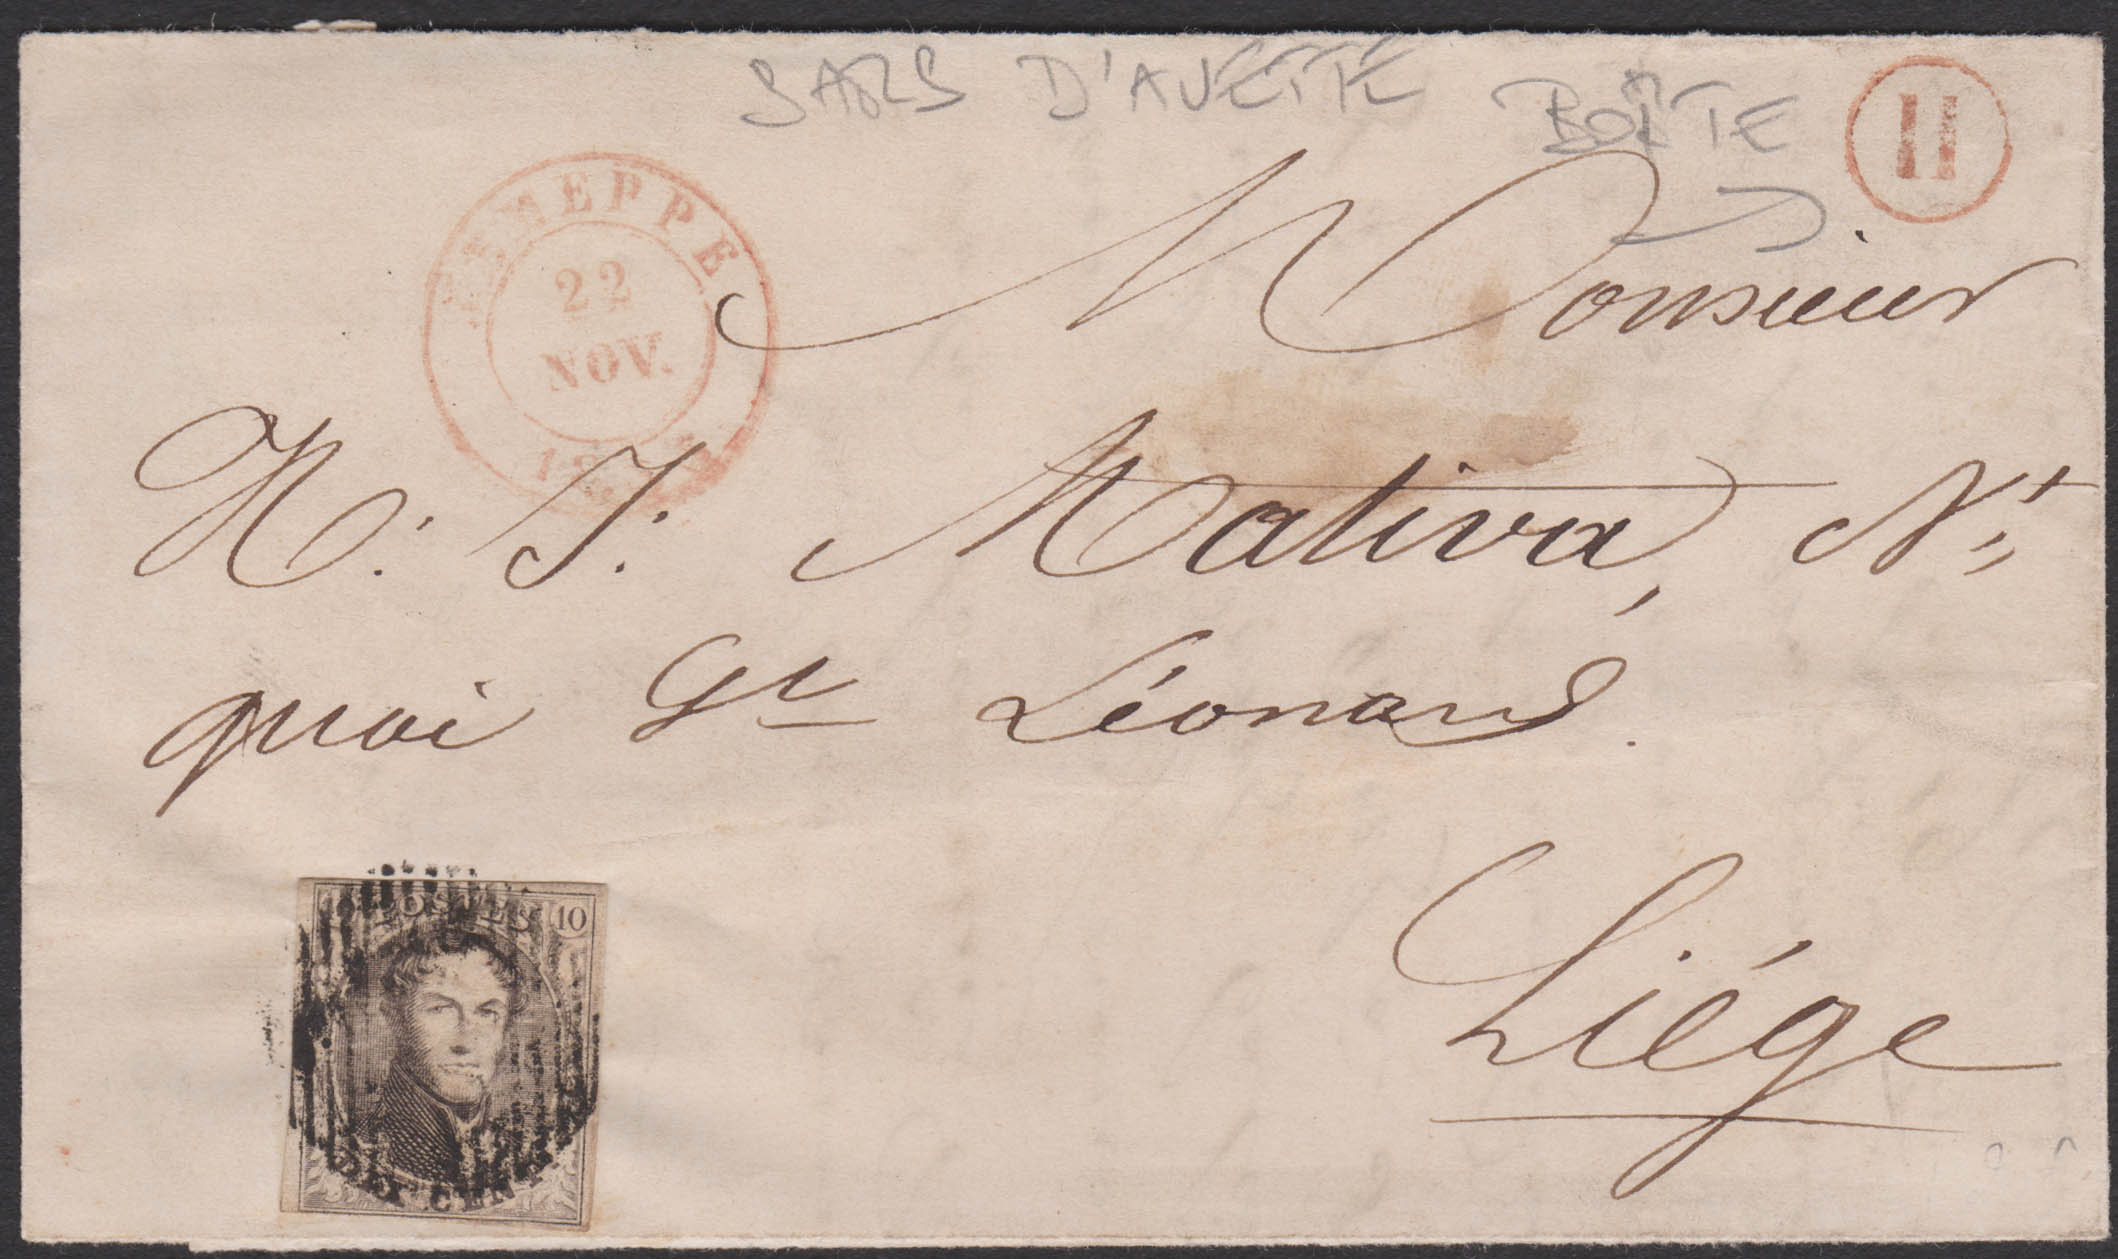 SARS D'AVETTE BOÎTE
H
JEMEPPE
22
NOV.
Monsieur
H. J. Mativa, Nt
quai St Léonard.
Liége
POSTES
10
DIX CENTIMES